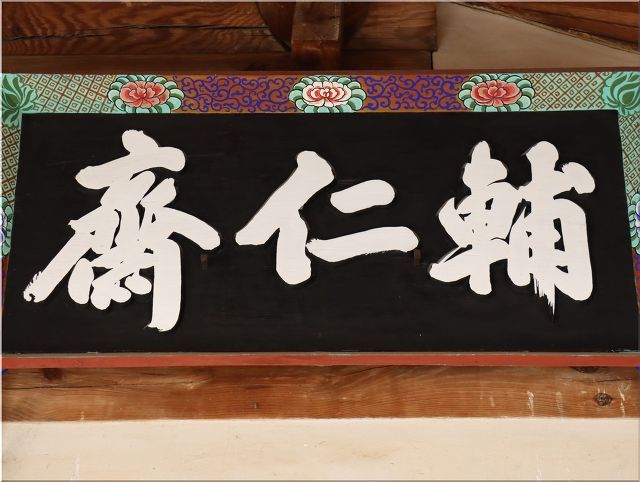 輔仁齋